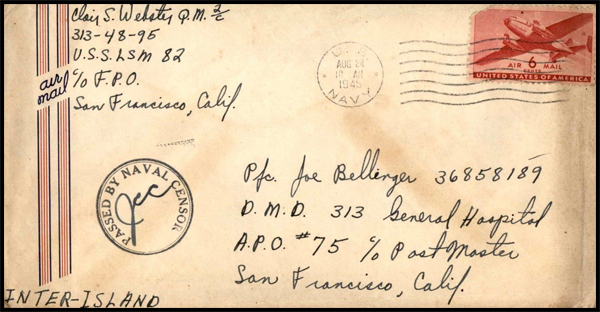 Clair S. Webster Q.M. 3/c
313-48-95
U.S.S. LSM 82
c/o F.P.O.
San Francisco, Calif.
air
mail
AUG 24
1945
NAVY
AIR 6 MAIL
CENTS
UNITED STATES OF AMERICA
PASSED BY NAVAL CENSOR
Pfc. Joe Bellinger 36858189
D.M.D. 313 General Hospital
A.P.O. #75 c/o Post Master
San Francisco, Calif.
INTER-ISLAND